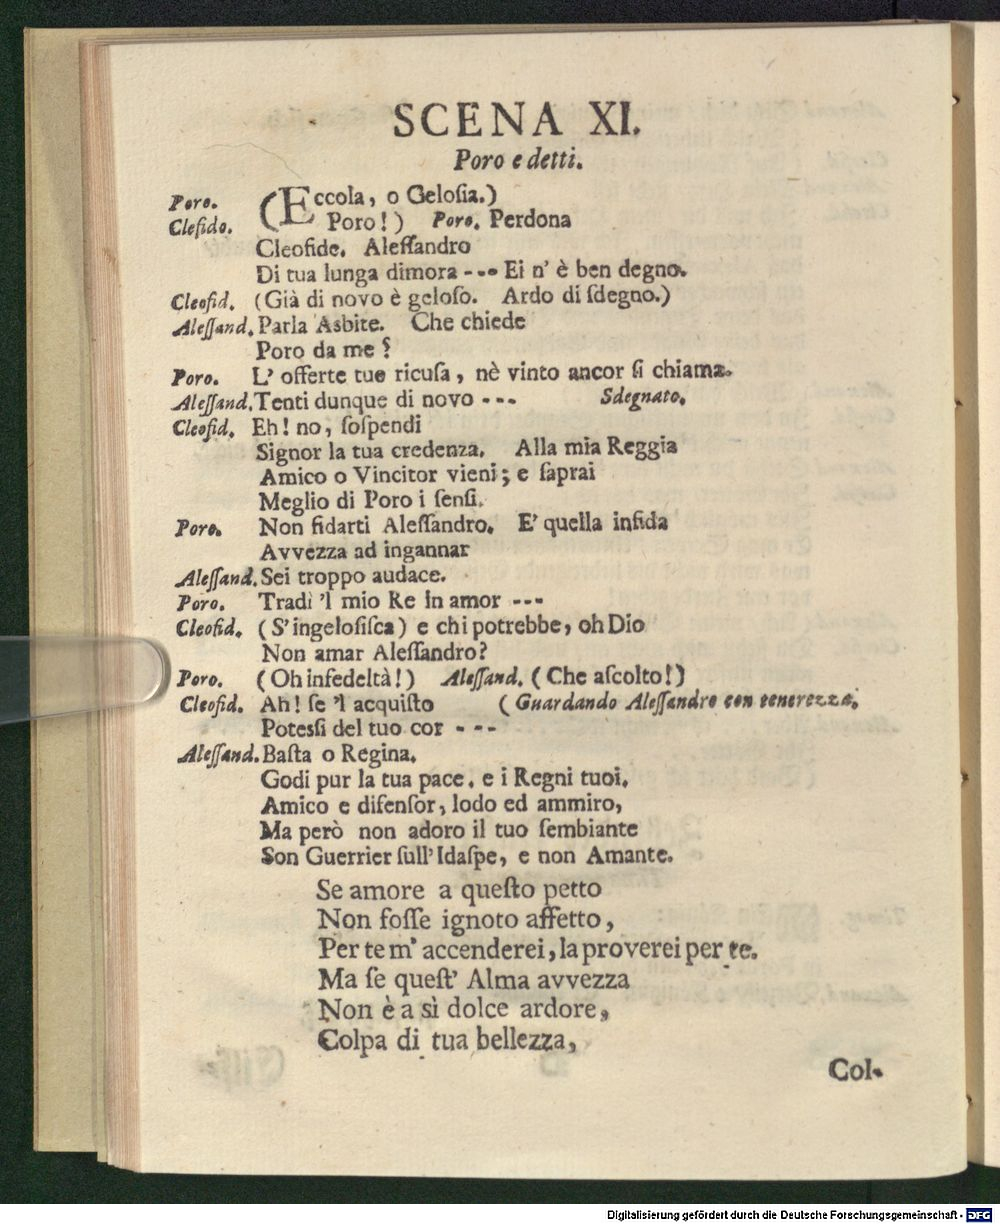 SCENA XI.
Poro e detti.
Poro. (Eccola, o Gelosia.)
Clefido. Poro!) Poro. Perdona
Cleofide. Alessandro
Di tua lunga dimora --- Ei n' è ben degno.
Cleofid. (Già di novo è geloso. Ardo di sdegno.)
Alessand. Parla Asbite. Che chiede
Poro da me?
Poro. L' offerte tue ricusa, nè vinto ancor si chiama.
Alessand. Tenti dunque di novo --- Sdegnato.
Cleofid. Eh! no, sospendi
Signor la tua credenza. Alla mia Reggia
Amico o Vincitor vieni; e saprai
Meglio di Poro i sensi.
Poro. Non fidarti Alessandro. E' quella infida
Avvezza ad ingannar
Alessand. Sei troppo audace.
Poro. Tradì 'l mio Re in amor ---
Cleofid. (S'ingelosisca) e chi potrebbe, oh Dio
Non amar Alessandro?
Poro. (Oh infedeltà!) Alessand. (Che ascolto!)
Cleofid. Ah! se 'l acquisto (Guardando Alessandro con tenerezza.
Potessi del tuo cor ---
Alessand. Basta o Regina.
Godi pur la tua pace. e i Regni tuoi.
Amico e difensor, lodo ed ammiro,
Ma però non adoro il tuo sembiante
Son Guerrier sull' Idaspe, e non Amante.
Se amore a questo petto
Non fosse ignoto affetto,
Per te m' accenderei, la proverei per te.
Ma se quest' Alma avvezza
Non è a sì dolce ardore,
Colpa di tua bellezza,
Col-
Digitalisierung gefördert durch die Deutsche Forschungsgemeinschaft - DFG